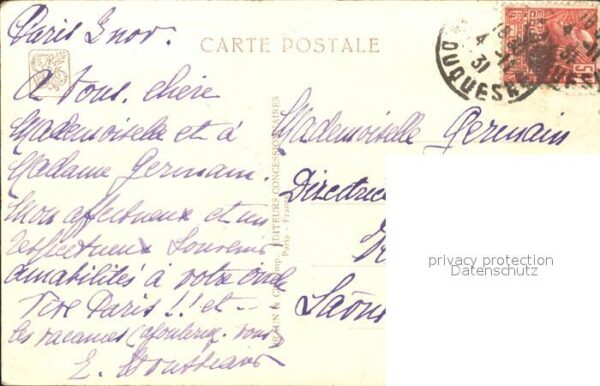 Paris 3 nov.
CARTE POSTALE
A vous, chère
Mademoiselle et à
Madame Germain.
mon affectueux et un
respectueux souvenir
amabilités à votre oncle
Vive Paris!! et
les vacances (ajouterez-vous
E.
BRAUN & Cie, Imp. ÉDITEURS CONCESSIONNAIRES
Paris - France
Mademoiselle Germain
Directrice
Saône
4 -11
31
DUQUES
privacy protection
Datenschutz